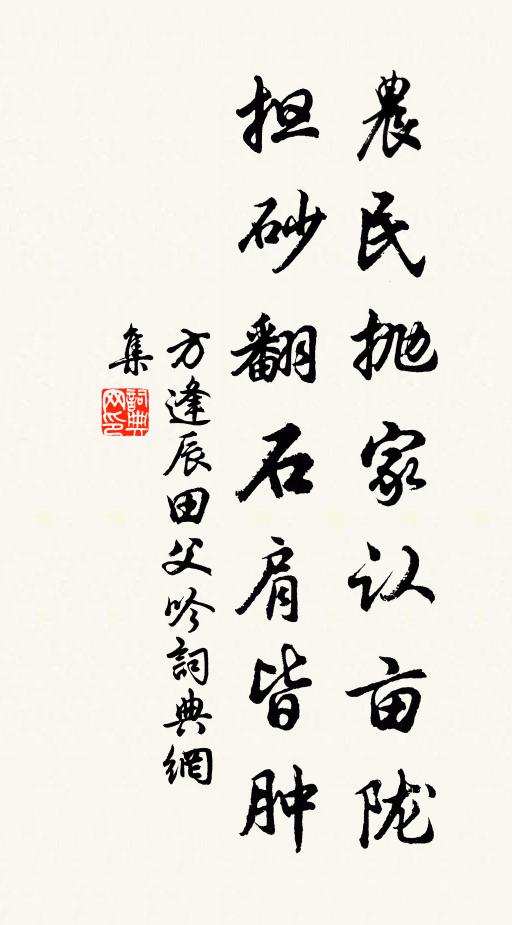 農民抛家认亩陇
担砂翻石肩皆肿
方逢辰田父吟詞典網
集
詞典
网印